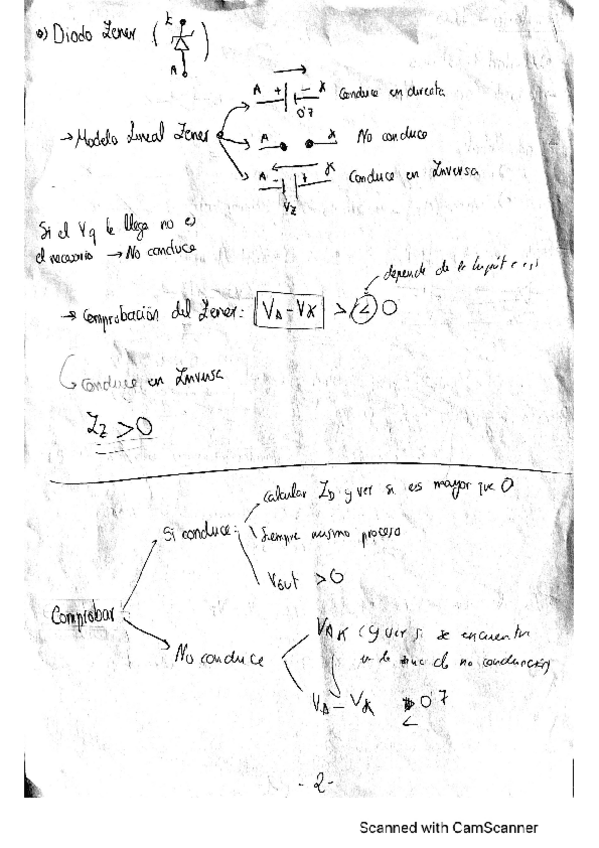 o) Diodo Zener ( K A )
A + - K Conduce en directa
0'7
→ Modelo Lineal Zener
A K No conduce
A - + K Conduce en Inversa
Vz
Si el Vq le llega no es
el necesario → No conduce
depende de la
→ Comprobación del Zener: VA - VK > < 0
Conduce en Inversa
Iz > 0
calcular ID y ver si es mayor que 0
Si conduce:
Siempre mismo proceso
Vout > 0
Comprobar
VAK (y ver si se encuentra
No conduce
no conducción
VA - VK 0'7
<
- 2 -
Scanned with CamScanner